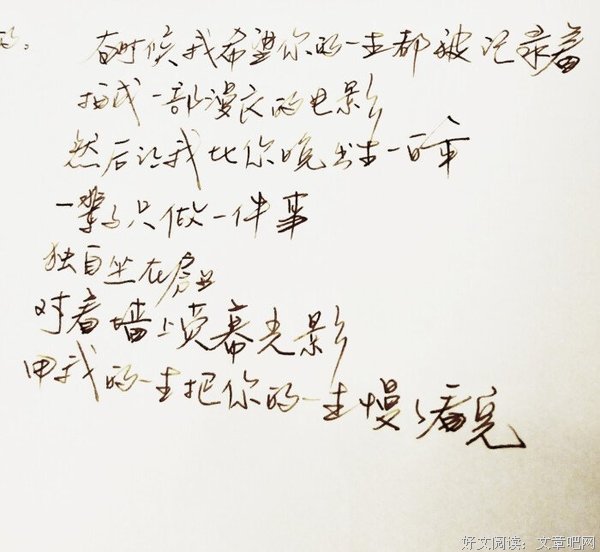 的。 有时候我希望你的一生都被记录着
拍成一部漫长的电影
然后让我比你晚出生一百年
一辈子只做一件事
独自坐在房里
对着墙上荧幕光影
用我的一生把你的一生慢慢看完
好文阅读：文章吧网